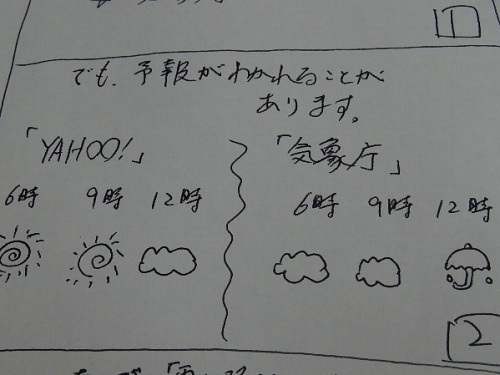 1
でも、予報がわかれることが
あります。
「YAHOO!」
「気象庁」
6時 9時 12時
6時 9時 12時
2